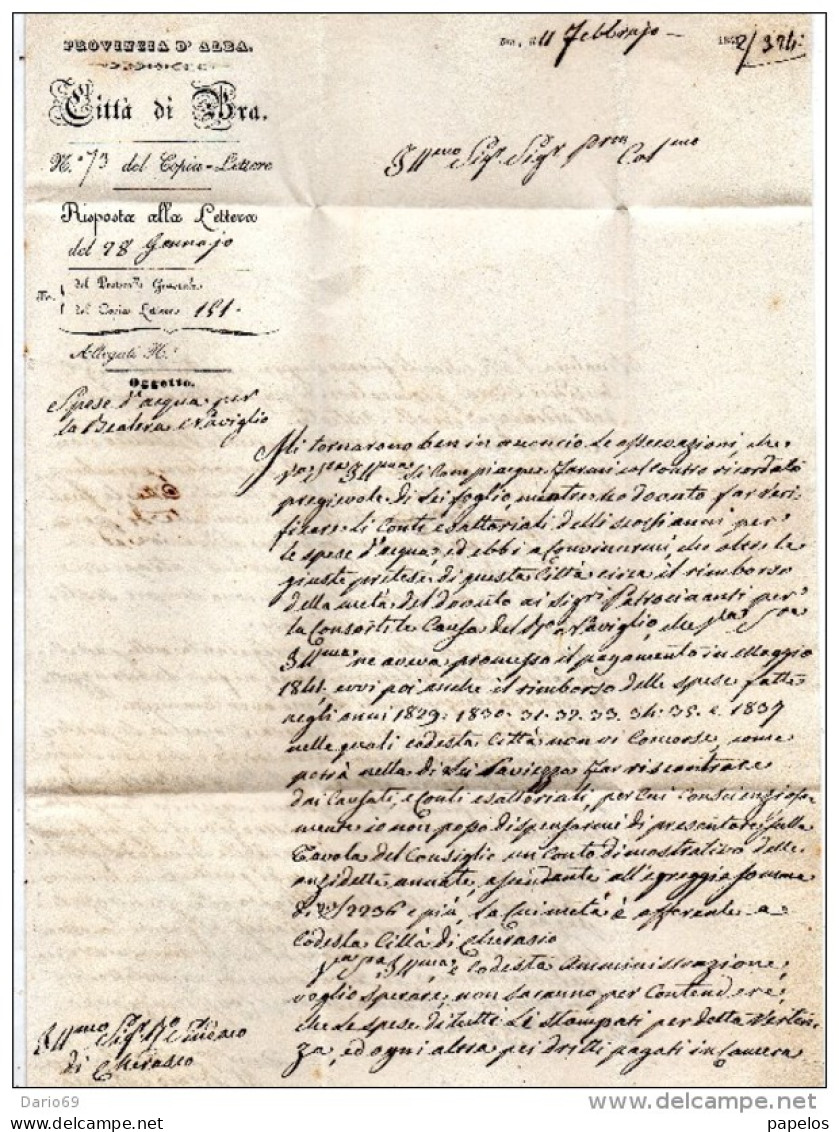 PROVINZIA D' ALBA.
Città di Bra.
N.° 73 del Copia-Lettere
Risposta alla Lettera
del 28 Gennajo
No. del Protoc.° Generale
del Copia Lettere 151.
Allegati N.°
Oggetto.
Spese d'acqua per
la Bealera e Naviglio
Bra, il 11 Febbrajo 1842/324.
Ill.mo Sig.r Sig.r P.ron Col.mo
Mi tornarono ben in acconcio le osservazioni, che
V.a S.a Ill.ma si compiacque farmi col contro ricordato
pregievole di Lei foglio, mentre ho dovuto far veri-
ficare li Conti esattoriali delli scorsi anni, per
le spese d'acqua, ed ebbi a Convincermi, che oltre le
giuste pretese di questa Città circa il rimborso
della metà del dovuto ai sig.ri Patrocinanti per
la Consortile Causa del Naviglio, che
Ill.ma ne aveva promesso il pagamento in Maggio
1841, evvi poi anche il rimborso delle spese fatte
negli anni 1829. 1830. 31. 32. 33. 34. 35. e 1837
nelle quali codesta Città non vi Concorse, come
potrà nella di Lei Saviezza far riscontrare
dai Causati, e Conti esattoriali, per cui conscienziosa-
mente io non posso dispensarmi di presentare sulla
Tavola del Consiglio un Conto dimostrativo delle
anzidette annate, ascendente all'egreggia somma
di 2236 e più, la cui metà è afferente a
codesta Città di Cherasco
V.a S.a Ill.ma, e Codesta Amministrazione,
voglio sperare, non saranno per Contendere,
che le spese di tutti li stampati per detta Verten-
za, ed ogni altra pei dritti pagati in Camera
Ill.mo Sig.r Sindaco
di Cherasco
Dario69
delcampe.net
papelos